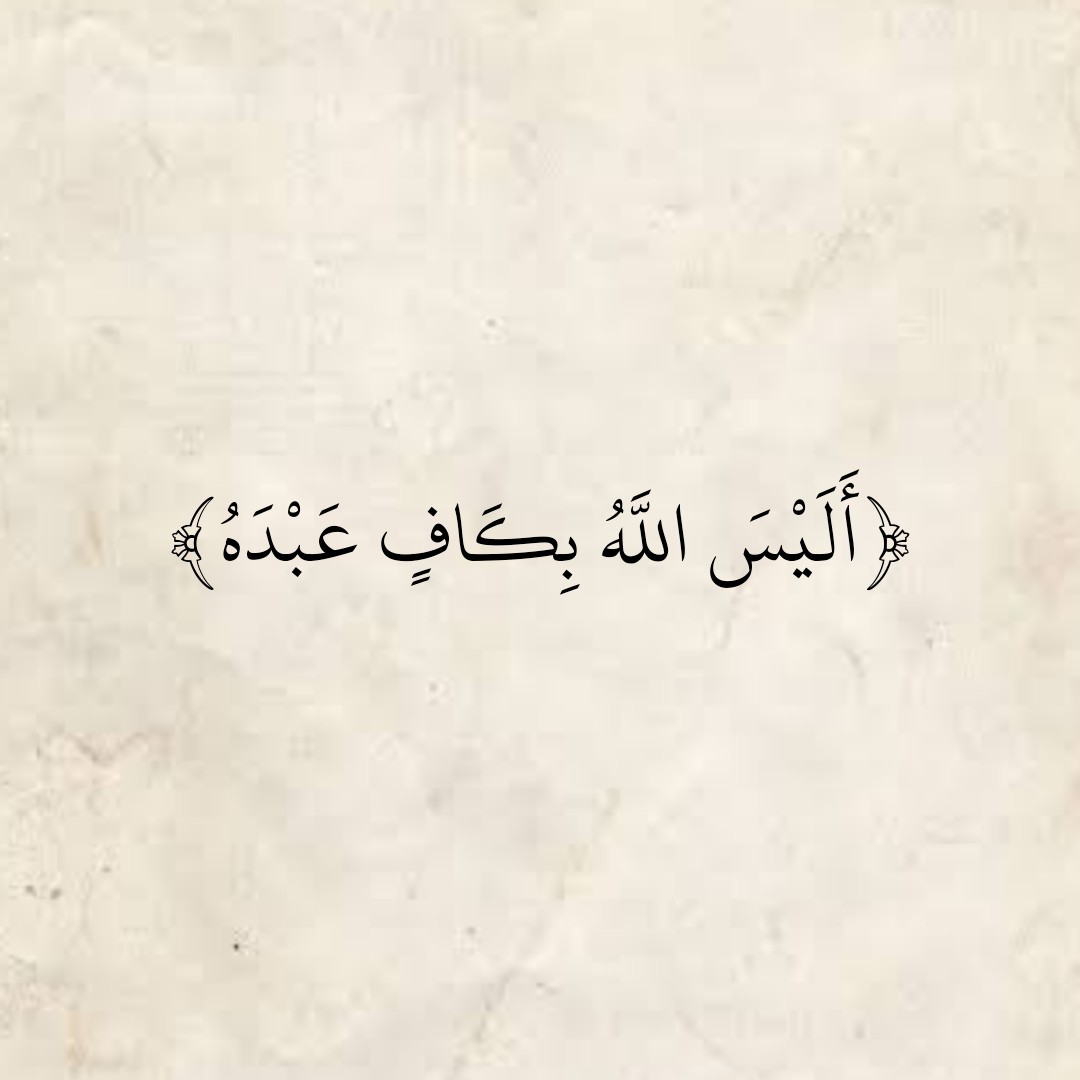 ﴿أَلَيْسَ اللَّهُ بِكَافٍ عَبْدَهُ﴾